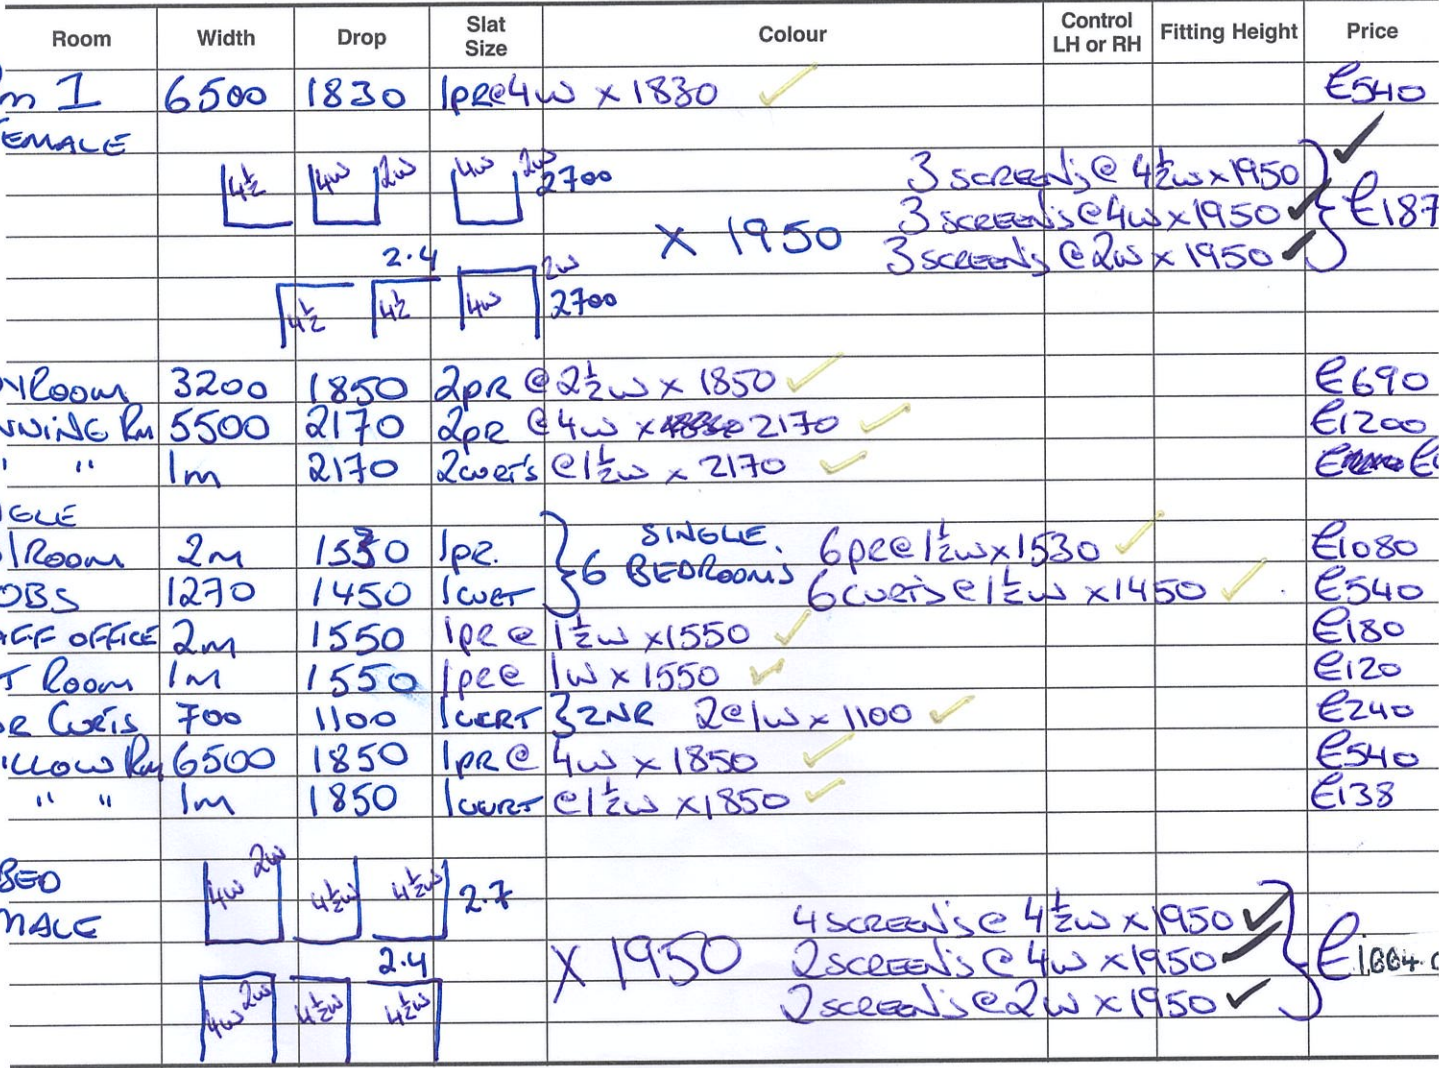 Room Width Drop Slat Size Colour Control LH or RH Fitting Height Price
m 1 6500 1830 1pr@4w x 1830 £540
EMALE
4½ 4w 2w 4w 2w 2700 3 SCREEN's @ 4½w x 1950
x 1950 3 SCREEN's @ 4w x 1950 £187
2.4 3 SCREEN's @ 2w x 1950
4½ 4½ 4w 2w 2700
YROOM 3200 1850 2PR @ 2½w x 1850 £690
NNING Rm 5500 2170 2PR @ 4w x 2170 £1200
" " 1m 2170 2CURT's @ 1½w x 2170
GLE
ROOM 2m 1530 1PR. } 6 SINGLE BEDROOMS 6PR@1½w x 1530 £1080
OBS 1270 1450 1CURT 6CURTS@1½w x 1450 £540
AFF OFFICE 2m 1550 1PR@ 1½w x 1550 £180
T ROOM 1m 1550 1PR@ 1w x 1550 £120
R CURTS 700 1100 1CURT } 2NR 2@1w x 1100 £240
ILLOW Rm 6500 1850 1PR@ 4w x 1850 £540
" " 1m 1850 1CURT @1½w x 1850 £138
BED 4w 2w 4½w 4½w 2.7
MALE 4 SCREEN's @ 4½w x 1950
2.4 x 1950 2 SCREEN's @ 4w x 1950
4w 2w 4½w 4½w 2 SCREEN's @ 2w x 1950